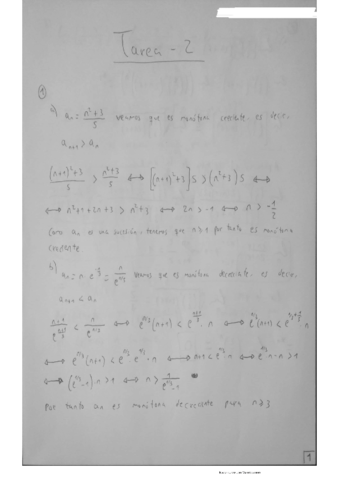 Tarea - 2
①
a) aₙ = (n²+3)/5 veamos que es monótona creciente, es decir,
aₙ₊₁ > aₙ
((n+1)²+3)/5 > (n²+3)/5 ⟷ [(n+1)²+3]5 > (n²+3)5 ⟷
⟷ n²+1+2n+3 > n²+3 ⟷ 2n > -1 ⟷ n > -1/2
Como aₙ es una sucesión, tenemos que n≥1 por tanto es monótona
creciente
b)
aₙ = n e^(-n/3) = n/e^(n/3) veamos que es monótona decreciente, es decir,
aₙ₊₁ < aₙ
(n+1)/e^((n+1)/3) < n/e^(n/3) ⟷ e^(n/3)(n+1) < e^((n+1)/3) · n ⟷ e^(n/3)(n+1) < e^(n/3+1/3) · n
⟷ e^(n/3)(n+1) < e^(n/3) e^(1/3) · n ⟷ n+1 < e^(1/3) · n ⟷ e^(1/3) n - n > 1
⟷ (e^(1/3) - 1) · n > 1 ⟷ n > 1/(e^(1/3) - 1)
Por tanto aₙ es monótona decreciente para n≥3
1